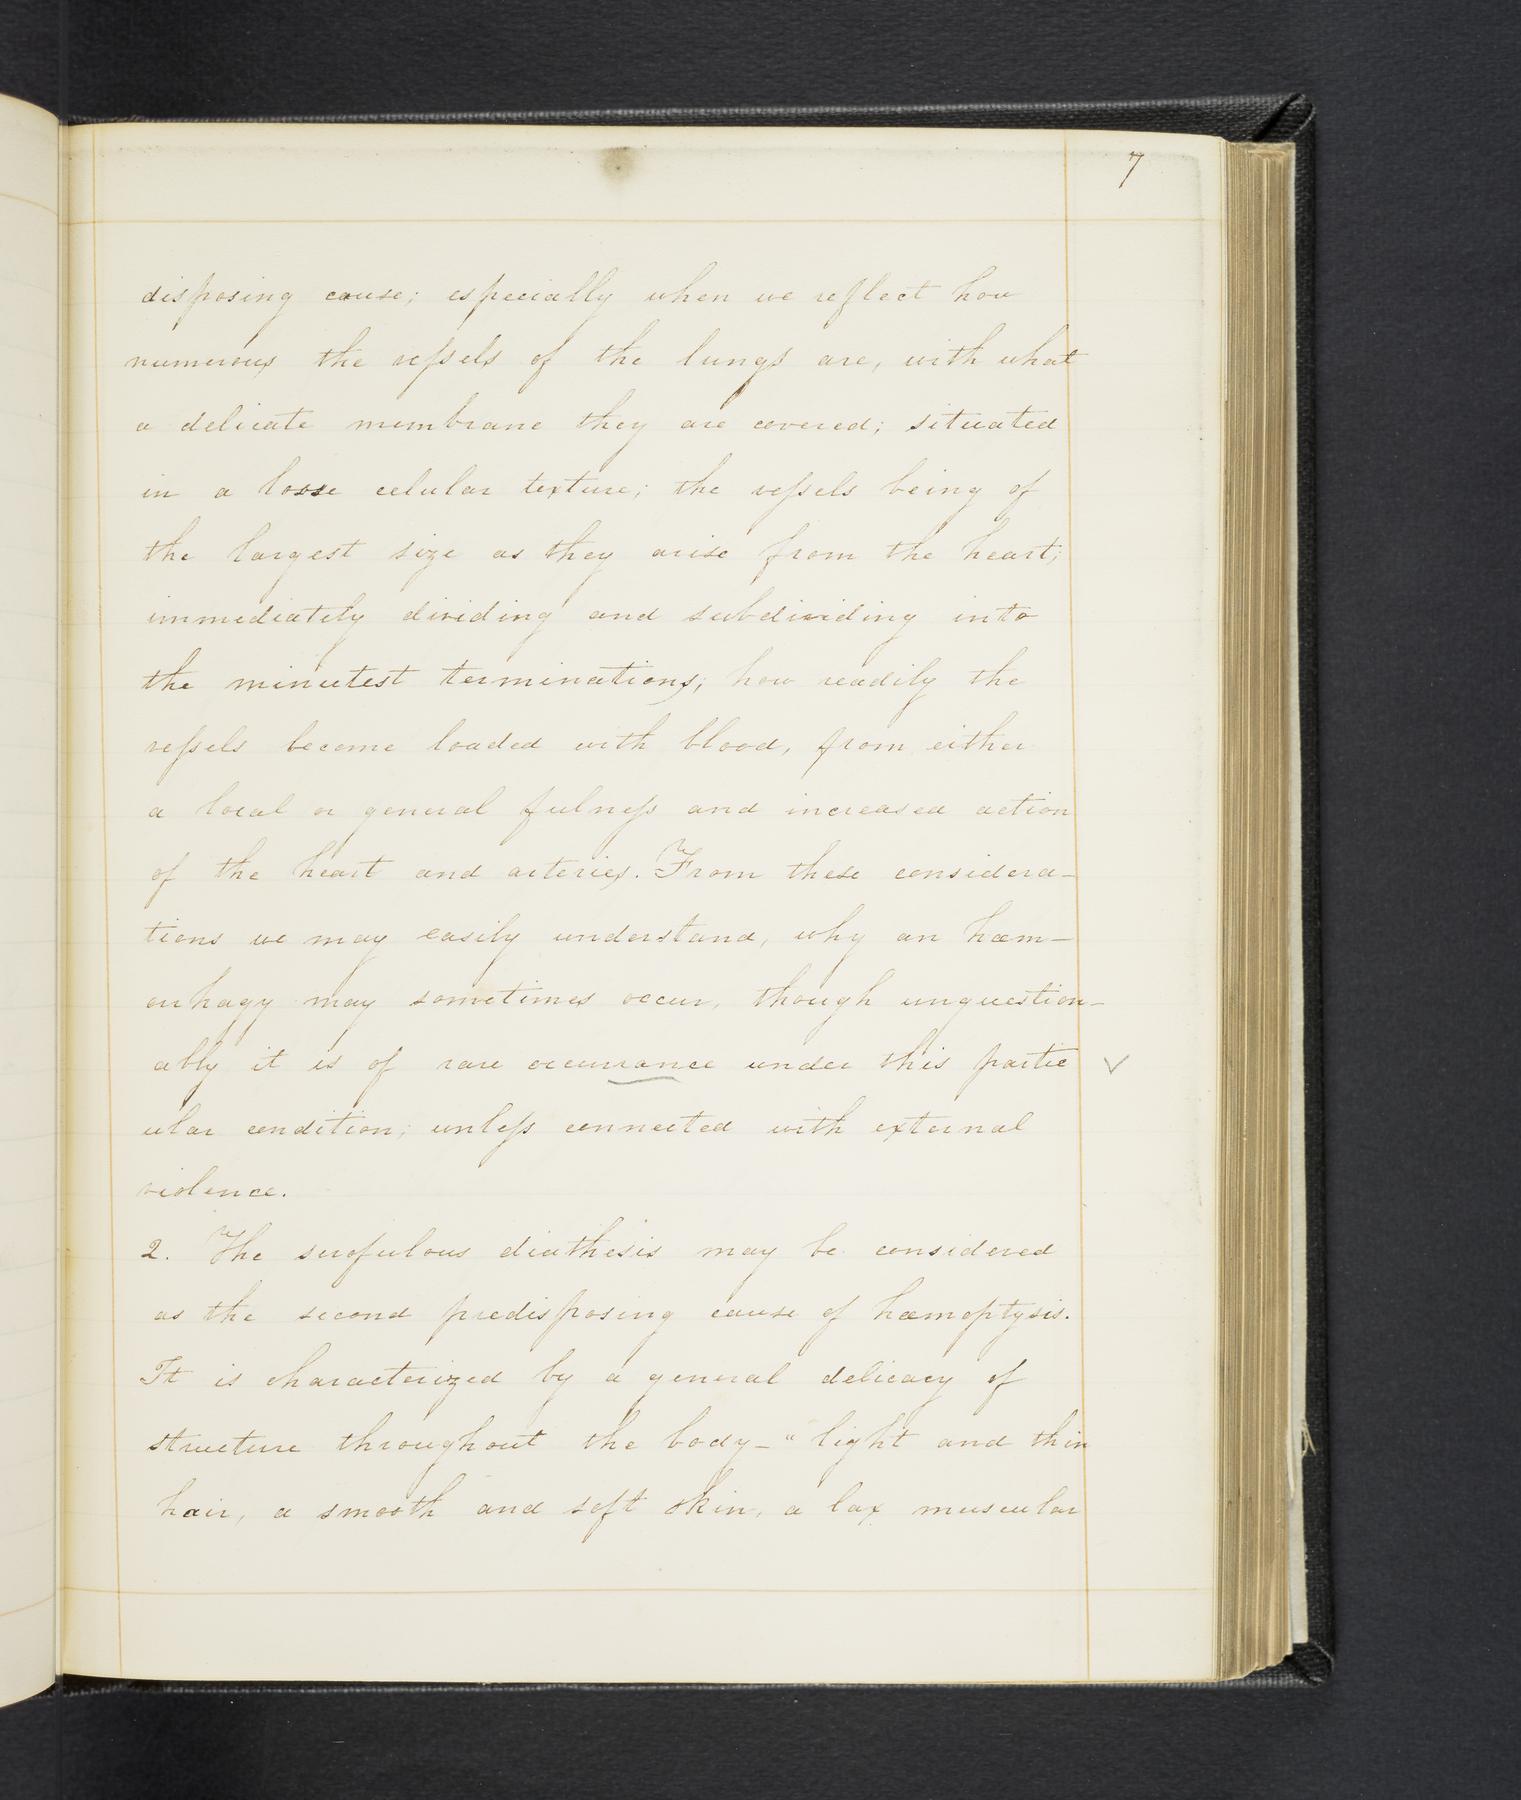 7
disposing cause; especially when we reflect how
numerous the vessels of the lungs are, with what
a delicate membrane they are covered; situated
in a loose celular texture; the vessels being of
the largest size as they arise from the heart;
immediately dividing and subdividing into
the minutest terminations; how readily the
vessels become loaded with blood, from either
a local or general fulness and increased action
of the heart and arteries. From these considera-
tions we may easily understand, why an hæm-
orrhagy may sometimes occur, though unquestion-
ably it is of rare occurrance under this partic
ular condition; unless connected with external
violence.
2. The scrofulous diathesis may be considered
as the second predisposing cause of hæmoptysis.
It is characterized by a general delicacy of
structure throughout the body–"light and thin
hair, a smooth and soft skin, a lax muscular